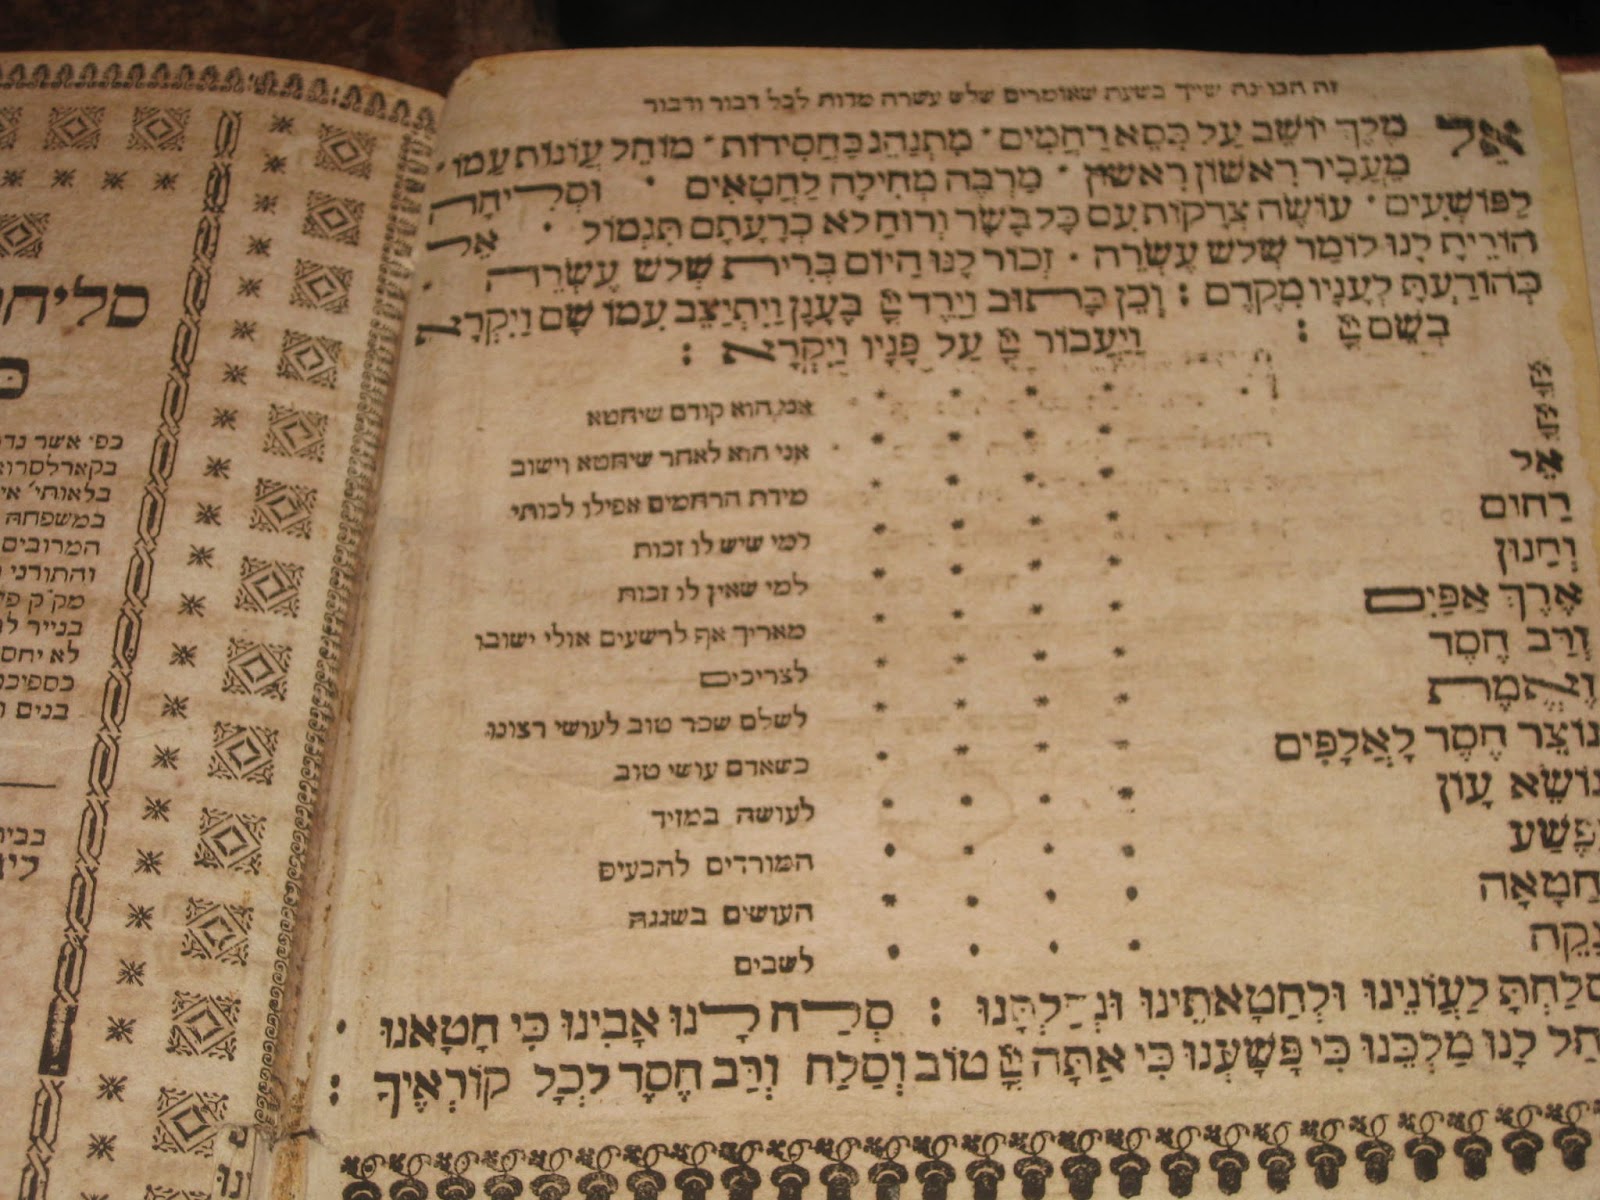 זה הכוונה שייך בשעת שאומרים שלש עשרה מדות לכל דבור ודבור
אֵל מֶלֶךְ יוֹשֵׁב עַל כִּסֵא רַחֲמִים · מִתְנַהֵג בַּחֲסִידוּת · מוֹחֵל עֲוֹנוֹת עַמּוֹ ·
מַעֲבִיר רִאשׁוֹן רִאשׁוֹן · מַרְבֶּה מְחִילָה לַחַטָאִים · וּסְלִיחָה
לַפּוֹשְׁעִים · עוֹשֶׂה צְדָקוֹת עִם כָּל בָּשָׂר וְרוּחַ לֹא כְרָעָתָם תִּגְמוֹל · אֵל
הוֹרֵיתָ לָנוּ לוֹמַר שְׁלֹשׁ עֶשְׂרֵה · זְכוֹר לָנוּ הַיּוֹם בְּרִית שְׁלֹשׁ עֶשְׂרֵה ·
כְּהוֹדַעְתָּ לֶעָנָיו מִקֶּדֶם : וְכֵן כָּתוּב וַיֵּרֶד יְיָ בֶּעָנָן וַיִּתְיַצֵּב עִמּוֹ שָׁם וַיִּקְרָא
בְשֵׁם יְיָ : וַיַּעֲבוֹר יְיָ עַל פָּנָיו וַיִּקְרָא :
אני הוא קודם שיחטא
אני הוא לאחר שיחטא וישוב
אֵל מידת הרחמים אפילו לכותי
רַחוּם למי שיש לו זכות
וְחַנוּן למי שאין לו זכות
אֶרֶךְ אַפַּיִם מאריך אף לרשעים אולי ישובו
וְרַב חֶסֶד לצריכים
וֶאֱמֶת לשלם שכר טוב לעושי רצונו
נוֹצֵר חֶסֶד לָאֲלָפִים כשאדם עושי טוב
נוֹשֵׂא עָוֹן לעושה במזיד
וָפֶשַׁע המורדים להכעיס
וְחַטָאָה העושים בשגגה
וְנַקֵה לשבים
וְסָלַחְתָּ לַעֲוֹנֵינוּ וּלְחַטָאתֵינוּ וּנְחַלְתָּנוּ : סְלַח לָנוּ אָבִינוּ כִּי חָטָאנוּ ·
מְחַל לָנוּ מַלְכֵּנוּ כִּי פָשָׁעְנוּ כִּי אַתָּה יְיָ טוֹב וְסַלַּח וְרַב חֶסֶד לְכָל קוֹרְאֶיךָ :
סליחו
כפי אשר נדפ
בקארלסרוא
בלאותי' אי
במשפחה
המרובים
והתורני
מק"ק פי
בנייר לו
לא יחס
כספיכם
בנים